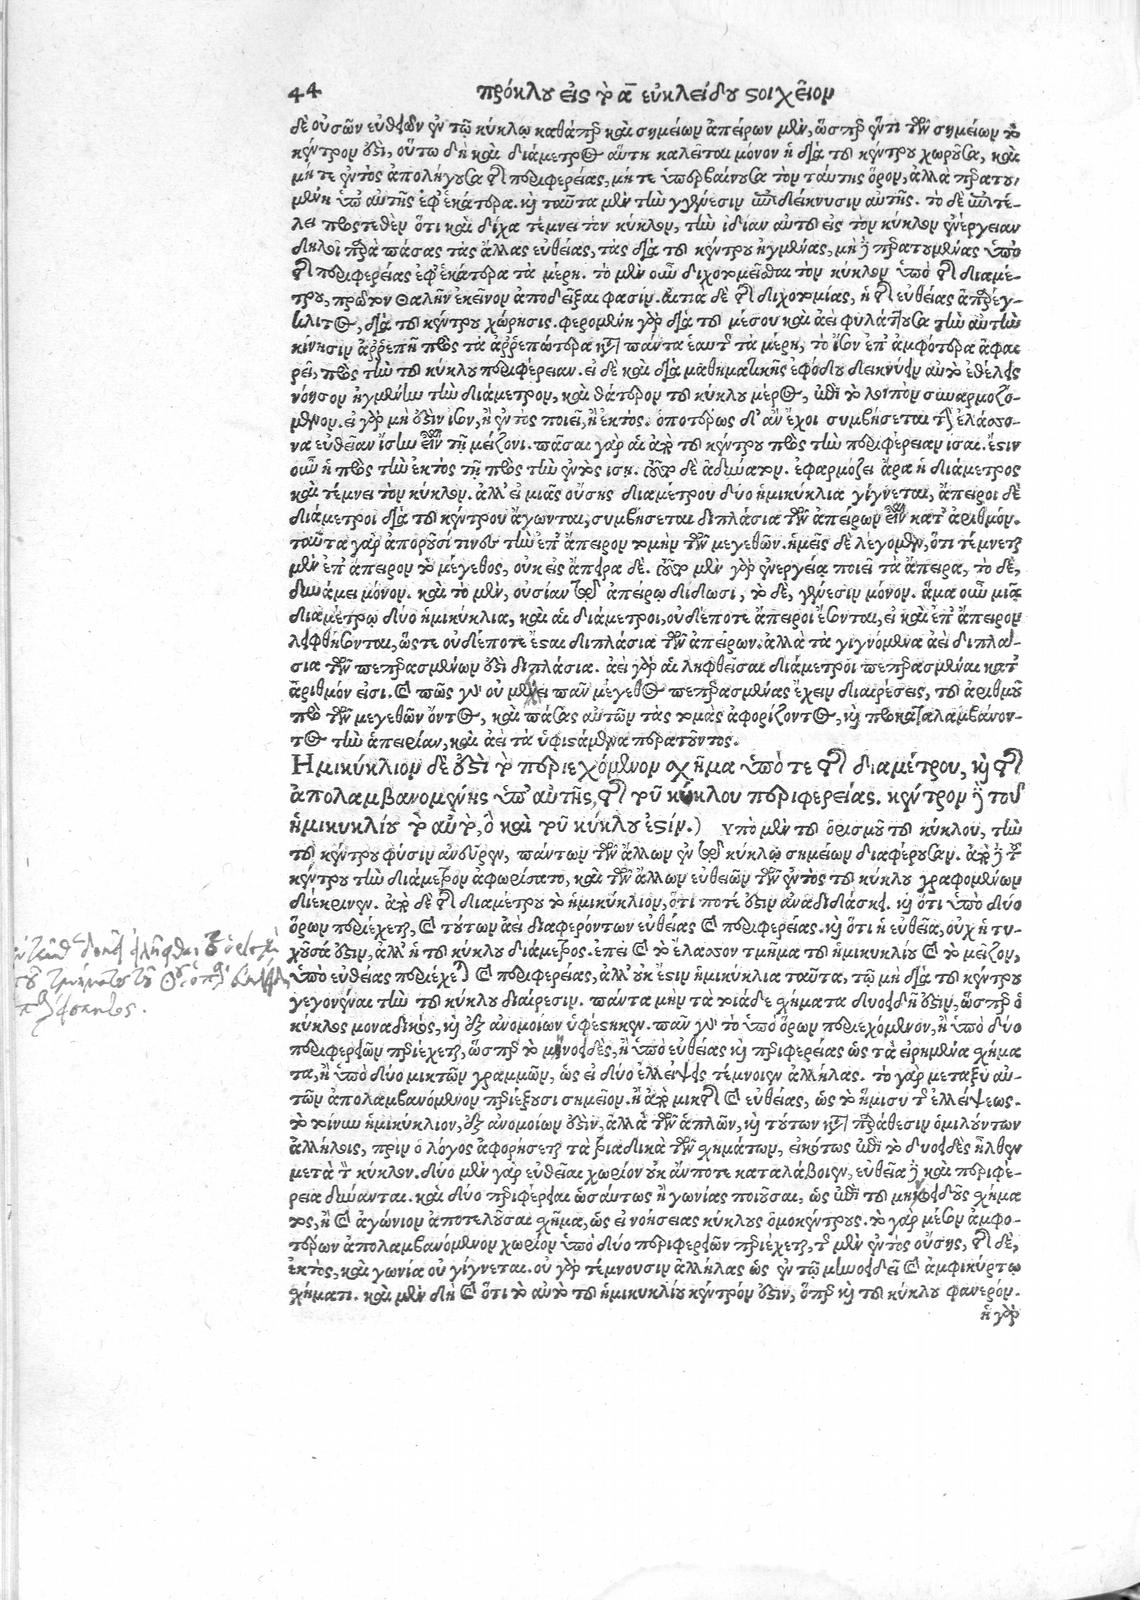 44 πρόκλου εἰς τὸ α εὐκλείδου στοιχεῖον
δὲ οὐσῶν εὐθειῶν ἐν τῷ κύκλῳ καθάπερ καὶ σημείων ἀπείρων μὲν, ὥσπερ ἕν τι τῶν σημείων τὸ
κέντρον ἐστὶ, οὕτω δὴ καὶ διάμετρος αὕτη καλεῖται μόνον ἡ διὰ τοῦ κέντρου χωροῦσα, καὶ
μή τε ἐντὸς ἀπολήγουσα τῆς περιφερείας, μή τε ὑπερβαίνουσα τὸν ταύτης ὅρον, ἀλλὰ περατου-
μένη ὑπ' αὐτῆς ἐφ' ἑκάτερα. καὶ ταῦτα μὲν τὴν γένεσιν ἐπιδείκνυσιν αὐτῆς. τὸ δὲ ἐπὶ τέ-
λει προστεθὲν ὅτι καὶ δίχα τέμνει τὸν κύκλον, τὴν ἰδίαν αὐτοῦ εἰς τὸν κύκλον ἐνέργειαν
δηλοῖ παρὰ πάσας τὰς ἄλλας εὐθείας, τὰς διὰ τοῦ κέντρου ἠγμένας, μὴ δὲ περατουμένας ὑπὸ
τῆς περιφερείας ἐφ' ἑκάτερα τὰ μέρη. τὸ μὲν οὖν διχοτομεῖσθαι τὸν κύκλον ὑπὸ τῆς διαμέ-
τρου, πρῶτον Θαλῆν ἐκεῖνον ἀποδεῖξαι φασίν. αἰτία δὲ τῆς διχοτομίας, ἡ τῆς εὐθείας ἀπαρέγ-
κλιτος, διὰ τοῦ κέντρου χώρησις. φερομένη γὰρ διὰ τοῦ μέσου καὶ ἀεὶ φυλάττουσα τὴν αὐτὴν
κίνησιν ἀῤῥεπῆ πρὸς τὰ ἀῤῥεπώτερα κατὰ πάντα ἑαυτῆς τὰ μέρη, τὸ ἴσον ἐπ' ἀμφότερα ἀφαι
ρεῖ, πρὸς τὴν τοῦ κύκλου περιφέρειαν. εἰ δὲ καὶ διὰ μαθηματικῆς ἐφόδου δεικνύειν αὐτὸ ἐθέλεις
νόησον ἠγμένην τὴν διάμετρον, καὶ θάτερον τοῦ κύκλου μέρος, ἐπὶ τὸ λοιπὸν συναρμοζό-
μενον. εἰ γὰρ μή ἐστιν ἴσον, ἢ ἐντὸς ποιεῖ, ἢ ἐκτός. ὁποτέρως δ' ἂν ἔχοι συμβήσεται τὴν ἐλάσσο-
να εὐθεῖαν ἴσην εἶναι τῇ μείζονι. πᾶσαι γὰρ αἱ ἀπὸ τοῦ κέντρου πρὸς τὴν περιφέρειαν ἴσαι. ἔστιν
οὖν ἡ πρὸς τὴν ἐκτὸς τῇ πρὸς τὴν ἐντὸς ἴση. τοῦτο δὲ ἀδύνατον. ἐφαρμόζει ἄρα ἡ διάμετρος
καὶ τέμνει τὸν κύκλον. ἀλλ' εἰ μιᾶς οὔσης διαμέτρου δύο ἡμικύκλια γίγνεται, ἄπειροι δὲ
διάμετροι διὰ τοῦ κέντρου ἄγωνται, συμβήσεται διπλάσια τῶν ἀπείρων εἶναι κατ' ἀριθμόν.
ταῦτα γὰρ ἀποροῦσί τινες τὴν ἐπ' ἄπειρον τομὴν τῶν μεγεθῶν. ἡμεῖς δὲ λέγομεν, ὅτι τέμνεται
μὲν ἐπ' ἄπειρον τὸ μέγεθος, οὐκ εἰς ἄπειρα δέ. τοῦτο μὲν γὰρ ἐνεργείᾳ ποιεῖ τὰ ἄπειρα, τὸ δὲ,
δυνάμει μόνον. καὶ τὸ μὲν, οὐσίαν τῷ ἀπείρῳ δίδωσι, τὸ δὲ, γένεσιν μόνον. ἅμα οὖν μιᾷ
διαμέτρῳ δύο ἡμικύκλια, καὶ αἱ διάμετροι, οὐδέποτε ἄπειροι ἔσονται, εἰ καὶ ἐπ' ἄπειρον
ληφθήσονται, ὥστε οὐδέποτε ἔσται διπλάσια τῶν ἀπείρων. ἀλλὰ τὰ γιγνόμενα ἀεὶ διπλά-
σια τῶν πεπερασμένων ἐστὶ διπλάσια. ἀεὶ γὰρ αἱ ληφθεῖσαι διάμετροι πεπερασμέναι κατ'
ἀριθμόν εἰσι. καὶ πῶς γὰρ οὐ μέλλει πᾶν μέγεθος πεπερασμένας ἔχειν διαιρέσεις, τοῦ ἀριθμοῦ
πρὸ τῶν μεγεθῶν ὄντος, καὶ πάσας αὐτῶν τὰς τομὰς ἀφορίζοντος, καὶ προκαταλαμβάνον-
τος τὴν ἀπειρίαν, καὶ ἀεὶ τὰ ὑφιστάμενα περατοῦντος.
Ημικύκλιον δέ ἐστι τὸ περιεχόμενον σχῆμα ὑπό τε τῆς διαμέτρου, καὶ τῆς
ἀπολαμβανομένης ὑπ' αὐτῆς, τῆς τοῦ κύκλου περιφερείας. κέντρον δὲ τοῦ
ἡμικυκλίου τὸ αὐτὸ, ὃ καὶ τοῦ κύκλου ἐστίν.) Υπὸ μὲν τοῦ ὁρισμοῦ τοῦ κύκλου, τὴν
τοῦ κέντρου φύσιν ἀνεῦρεν, πάντων τῶν ἄλλων ἐν τῷ κύκλῳ σημείων διαφέρουσαν. ἀπὸ δὲ τοῦ
κέντρου τὴν διάμετρον ἀφωρίσατο, καὶ τῶν ἄλλων εὐθειῶν τῶν ἐντὸς τοῦ κύκλου γραφομένων
διέκρινεν. ἀπὸ δὲ τῆς διαμέτρου τὸ ἡμικύκλιον, ὅτι ποτέ ἐστιν ἀναδιδάσκει. καὶ ὅτι ὑπὸ δύο
ὅρων περιέχεται, καὶ τούτων ἀεὶ διαφερόντων εὐθείας καὶ περιφερείας. καὶ ὅτι ἡ εὐθεῖα, οὐχ ἡ τυ-
χοῦσά ἐστιν, ἀλλ' ἡ τοῦ κύκλου διάμετρος. ἐπεὶ καὶ τὸ ἔλασσον τμῆμα τοῦ ἡμικυκλίου καὶ τὸ μεῖζον,
ὑπὸ εὐθείας περιέχεται καὶ περιφερείας, ἀλλ' οὐκ ἔστιν ἡμικύκλια ταῦτα, τῷ μὴ διὰ τοῦ κέντρου
γεγονέναι τὴν τοῦ κύκλου διαίρεσιν. πάντα μὲν τὰ τοιάδε σχήματα δυοειδῆ ἐστιν, ὥσπερ ὁ
κύκλος μοναδικὸς, καὶ ἐξ ἀνομοίων ὑφέστηκεν. πᾶν γὰρ τὸ ὑπὸ ὅρων περιεχόμενον, ἢ ὑπὸ δύο
περιφερειῶν περιέχεται, ὥσπερ τὸ μηνοειδὲς, ἢ ὑπὸ εὐθείας καὶ περιφερείας ὡς τὰ εἰρημένα σχήμα
τα, ἢ ὑπὸ δύο μικτῶν γραμμῶν, ὡς εἰ δύο ἐλλείψεις τέμνοιεν ἀλλήλας. τὸ γὰρ μεταξὺ αὐ-
τῶν ἀπολαμβανόμενον περιέξουσι σημεῖον. ἢ ἀπὸ μικτῆς καὶ εὐθείας, ὡς τὸ ἥμισυ τῆς ἐλλείψεως.
τὸ τοίνυν ἡμικύκλιον, ἐξ ἀνομοίων ἐστὶν, ἀλλὰ τῶν ἁπλῶν, καὶ τούτων κατὰ παράθεσιν ὁμιλούντων
ἀλλήλοις, πρὶν ὁ λόγος ἀφορήσεται τὰ τριαδικὰ τῶν σχημάτων, εἰκότως ἐπὶ τὸ δυοειδὲς ἦλθεν
μετὰ τὸν κύκλον. δύο μὲν γὰρ εὐθεῖαι χωρίον οὐκ ἄν ποτε καταλάβοιεν, εὐθεῖα δὲ καὶ περιφέ-
ρεια δύνανται. καὶ δύο περιφέρειαι ὡσαύτως ἢ γωνίας ποιοῦσαι, ὡς ἐπὶ τοῦ μηνοειδοῦς σχήμα
τος, ἢ καὶ ἀγώνιον ἀποτελοῦσαι σχῆμα, ὡς εἰ νοήσειας κύκλους ὁμοκέντρους. τὸ γὰρ μέσον ἀμφο-
τέρων ἀπολαμβανόμενον χωρίον ὑπὸ δύο περιφερειῶν περιέχεται, τῆς μὲν ἐντὸς οὔσης, τῆς δὲ,
ἐκτὸς, καὶ γωνία οὐ γίγνεται. οὐ γὰρ τέμνουσιν ἀλλήλας ὡς ἐν τῷ μηνοειδεῖ καὶ ἀμφικύρτῳ
σχήματι. καὶ μὲν δὴ καὶ ὅτι τὸ αὐτὸ τοῦ ἡμικυκλίου κέντρον ἐστὶν, ὅπερ καὶ τοῦ κύκλου φανερόν.
ἡ γὰρ